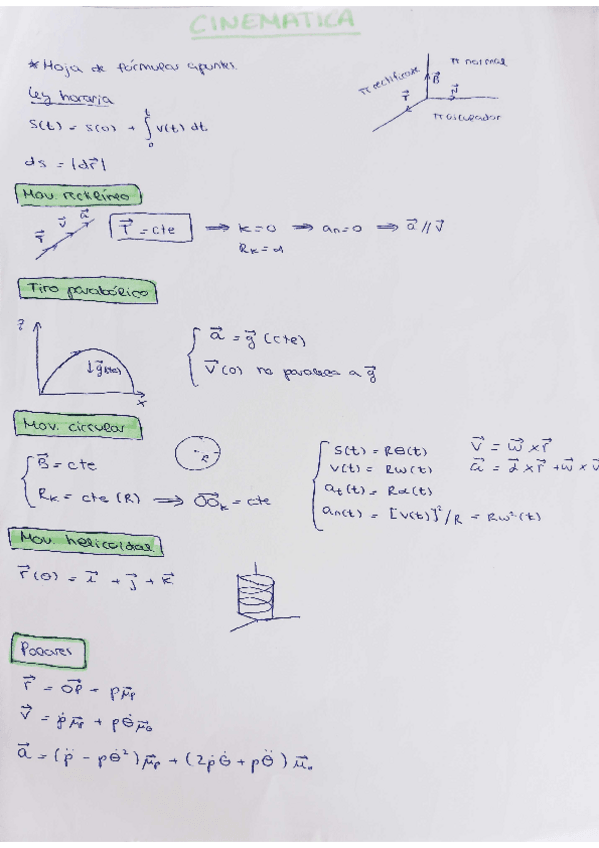 CINEMATICA
* Hoja de fórmulas apuntes.
π rectificante
π normal
B⃗
T⃗
N⃗
π osculador
Ley horaria
s(t) = s(0) + ∫₀ᵗ v(t) dt
ds = |dr⃗|
Mov. rectilíneo
T⃗ v⃗ a⃗
T⃗ = cte ⟹ k=0 ⟹ an=0 ⟹ a⃗ // v⃗
Rk = α
Tiro parabólico
?
↓g⃗(cte)
x
a⃗ = g⃗ (cte)
v⃗(0) no paralela a g⃗
Mov. circular
B⃗ = cte
Rk = cte (R) ⟹ OO⃗k = cte
R
s(t) = Rθ(t)
v(t) = Rω(t)
at(t) = Rα(t)
an(t) = [v(t)]²/R = Rω²(t)
v⃗ = ω⃗ x r⃗
a⃗ = α⃗ x r⃗ + ω⃗ x v⃗
Mov. helicoidal
r⃗(θ) = i⃗ + j⃗ + k⃗
Polares
r⃗ = OP⃗ = ρμ⃗ρ
v⃗ = ρ̇μ⃗ρ + ρθ̇μ⃗θ
a⃗ = (ρ̈ - ρθ̇²)μ⃗ρ + (2ρ̇θ̇ + ρθ̈)μ⃗θ